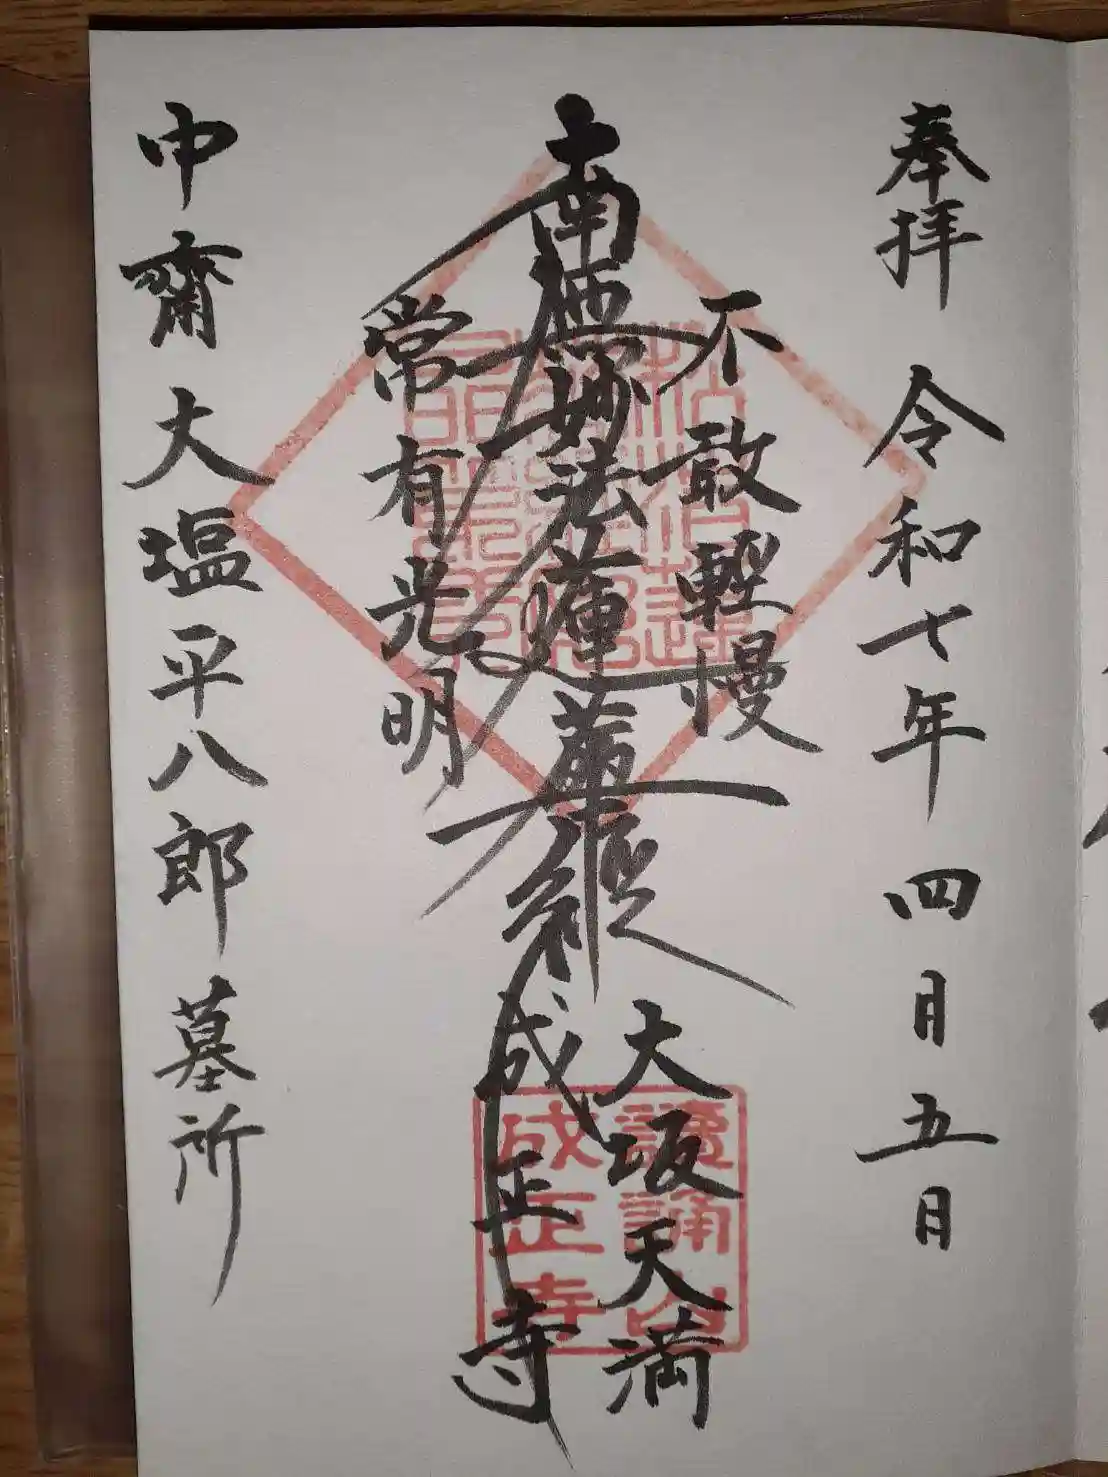 奉拝 令和七年 四月五日
不敢輕慢
南無妙法蓮華經
常有光明
大坂天満
成正寺
中齋大塩平八郎墓所
讀誦山
成正寺